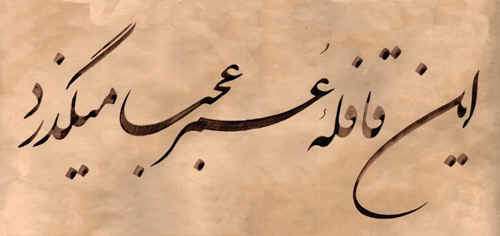 این قافلهٔ عُمر عجب میگذرد